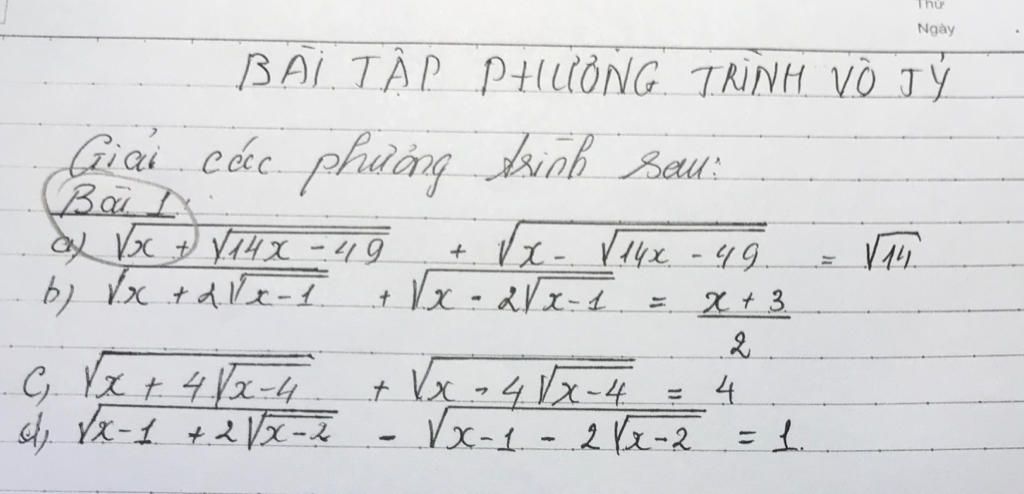 Thứ
Ngày
BÀI TẬP PHƯƠNG TRÌNH VÔ TỶ
Giải các phương trình sau:
Bài 1
a) √(x + √(14x - 49)) + √(x - √(14x - 49)) = √14
b) √(x + 2√(x-1)) + √(x - 2√(x-1)) = (x + 3)/2
c, √(x + 4√(x-4)) + √(x - 4√(x-4)) = 4
d, √(x-1 + 2√(x-2)) - √(x-1 - 2√(x-2)) = 1.